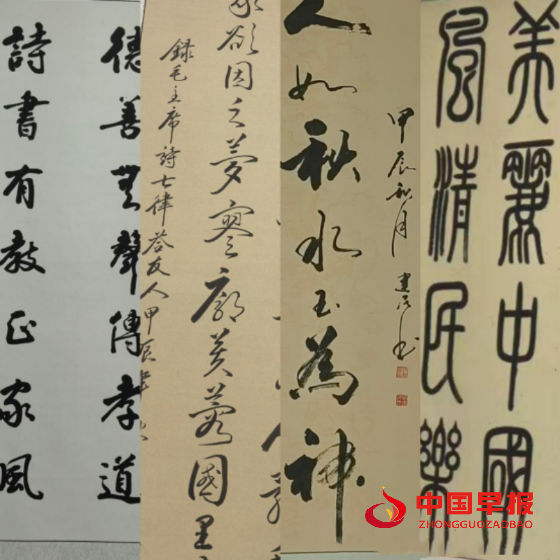 德善無聲傳孝道
詩書有教正家風
欲因之夢寥廓芙蓉國里
錄毛主席詩七律答友人甲辰年
人如秋水玉為神
甲辰秋月
美麗中國
風清民樂
中国早报
ZHONGGUOZAOBAO